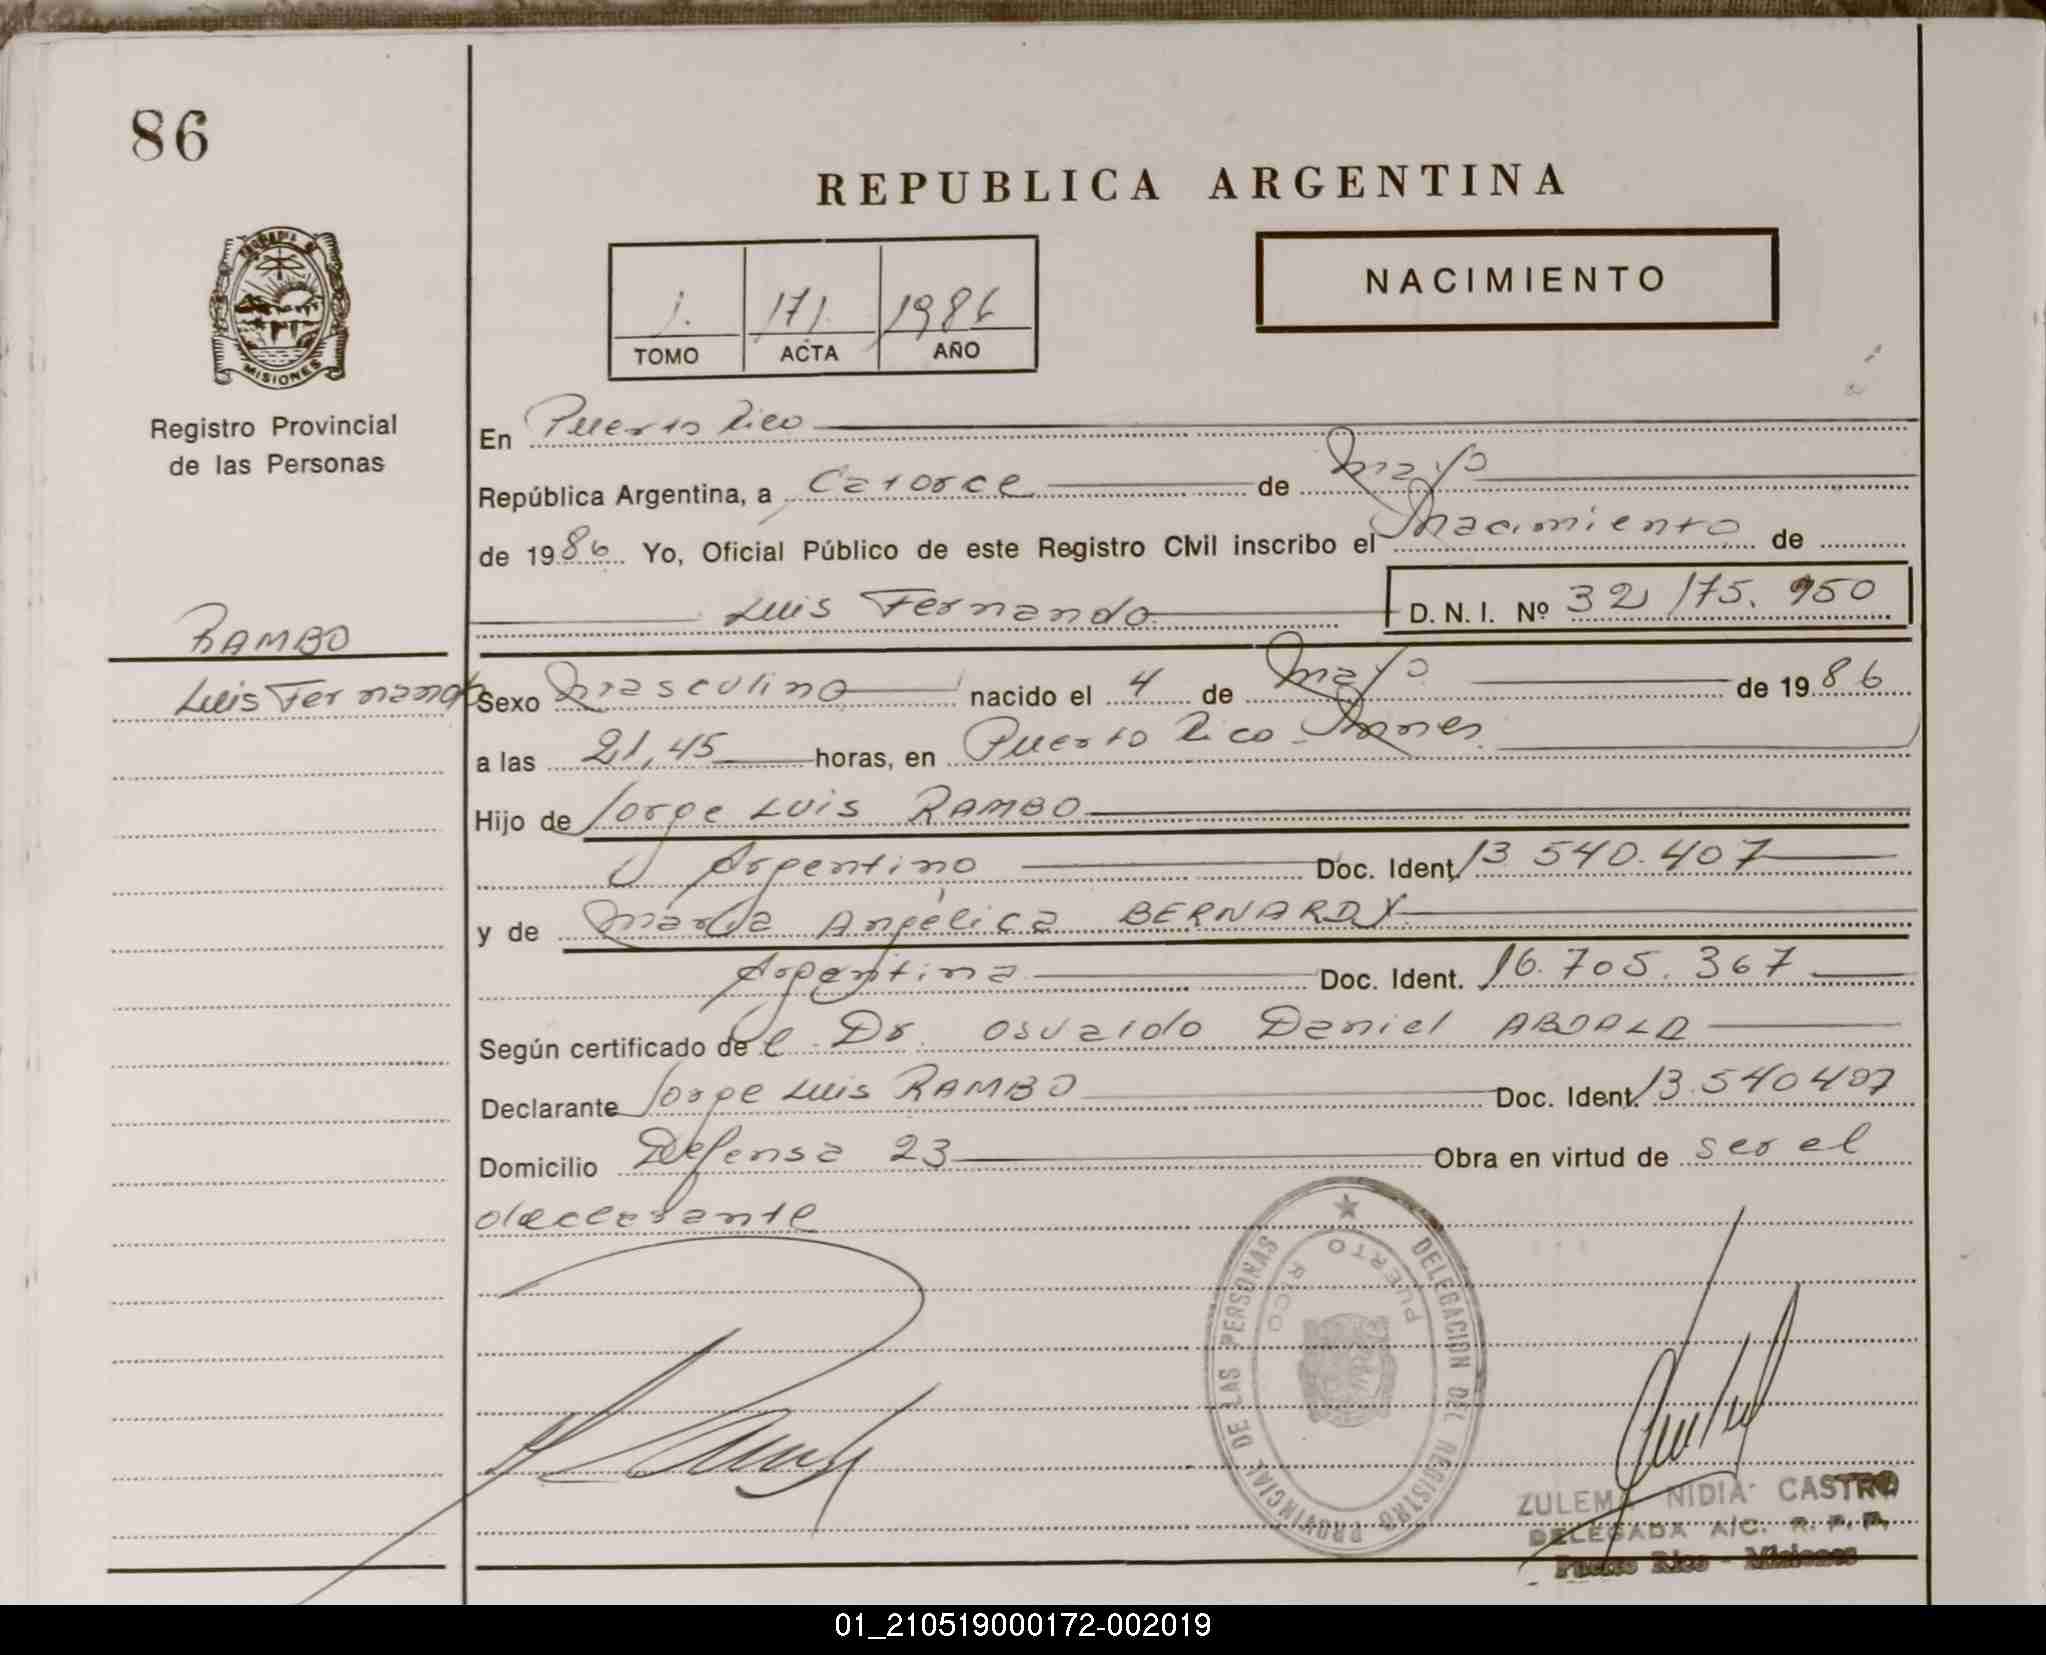 86
REPUBLICA ARGENTINA
NACIMIENTO
1. 171 1986
TOMO ACTA AÑO
MISIONES
Registro Provincial
de las Personas
En Puerto Rico
República Argentina, a Catorce de Mayo
de 1986 Yo, Oficial Público de este Registro Civil inscribo el Nacimiento de
Luis Fernando D. N. I. Nº 32.175.950
RAMBO
Luis Fernando
Sexo Masculino nacido el 4 de Mayo de 1986
a las 21,45 horas, en Puerto Rico - Mnes.
Hijo de Jorge Luis RAMBO
Argentino Doc. Ident. 13.540.407
y de María Angélica BERNARDY
Argentina Doc. Ident. 16.705.367
Según certificado del Dr. Osvaldo Daniel
Declarante Jorge Luis RAMBO Doc. Ident. 13.540407
Domicilio Defensa 23 Obra en virtud de ser el
declarante
DELEGACION DEL REGISTRO PROVINCIAL DE LAS PERSONAS
PUERTO RICO
ZULEMA NIDIA CASTRO
DELEGADA A/C. R. P. P.
Puerto Rico - Misiones
01_210519000172-002019